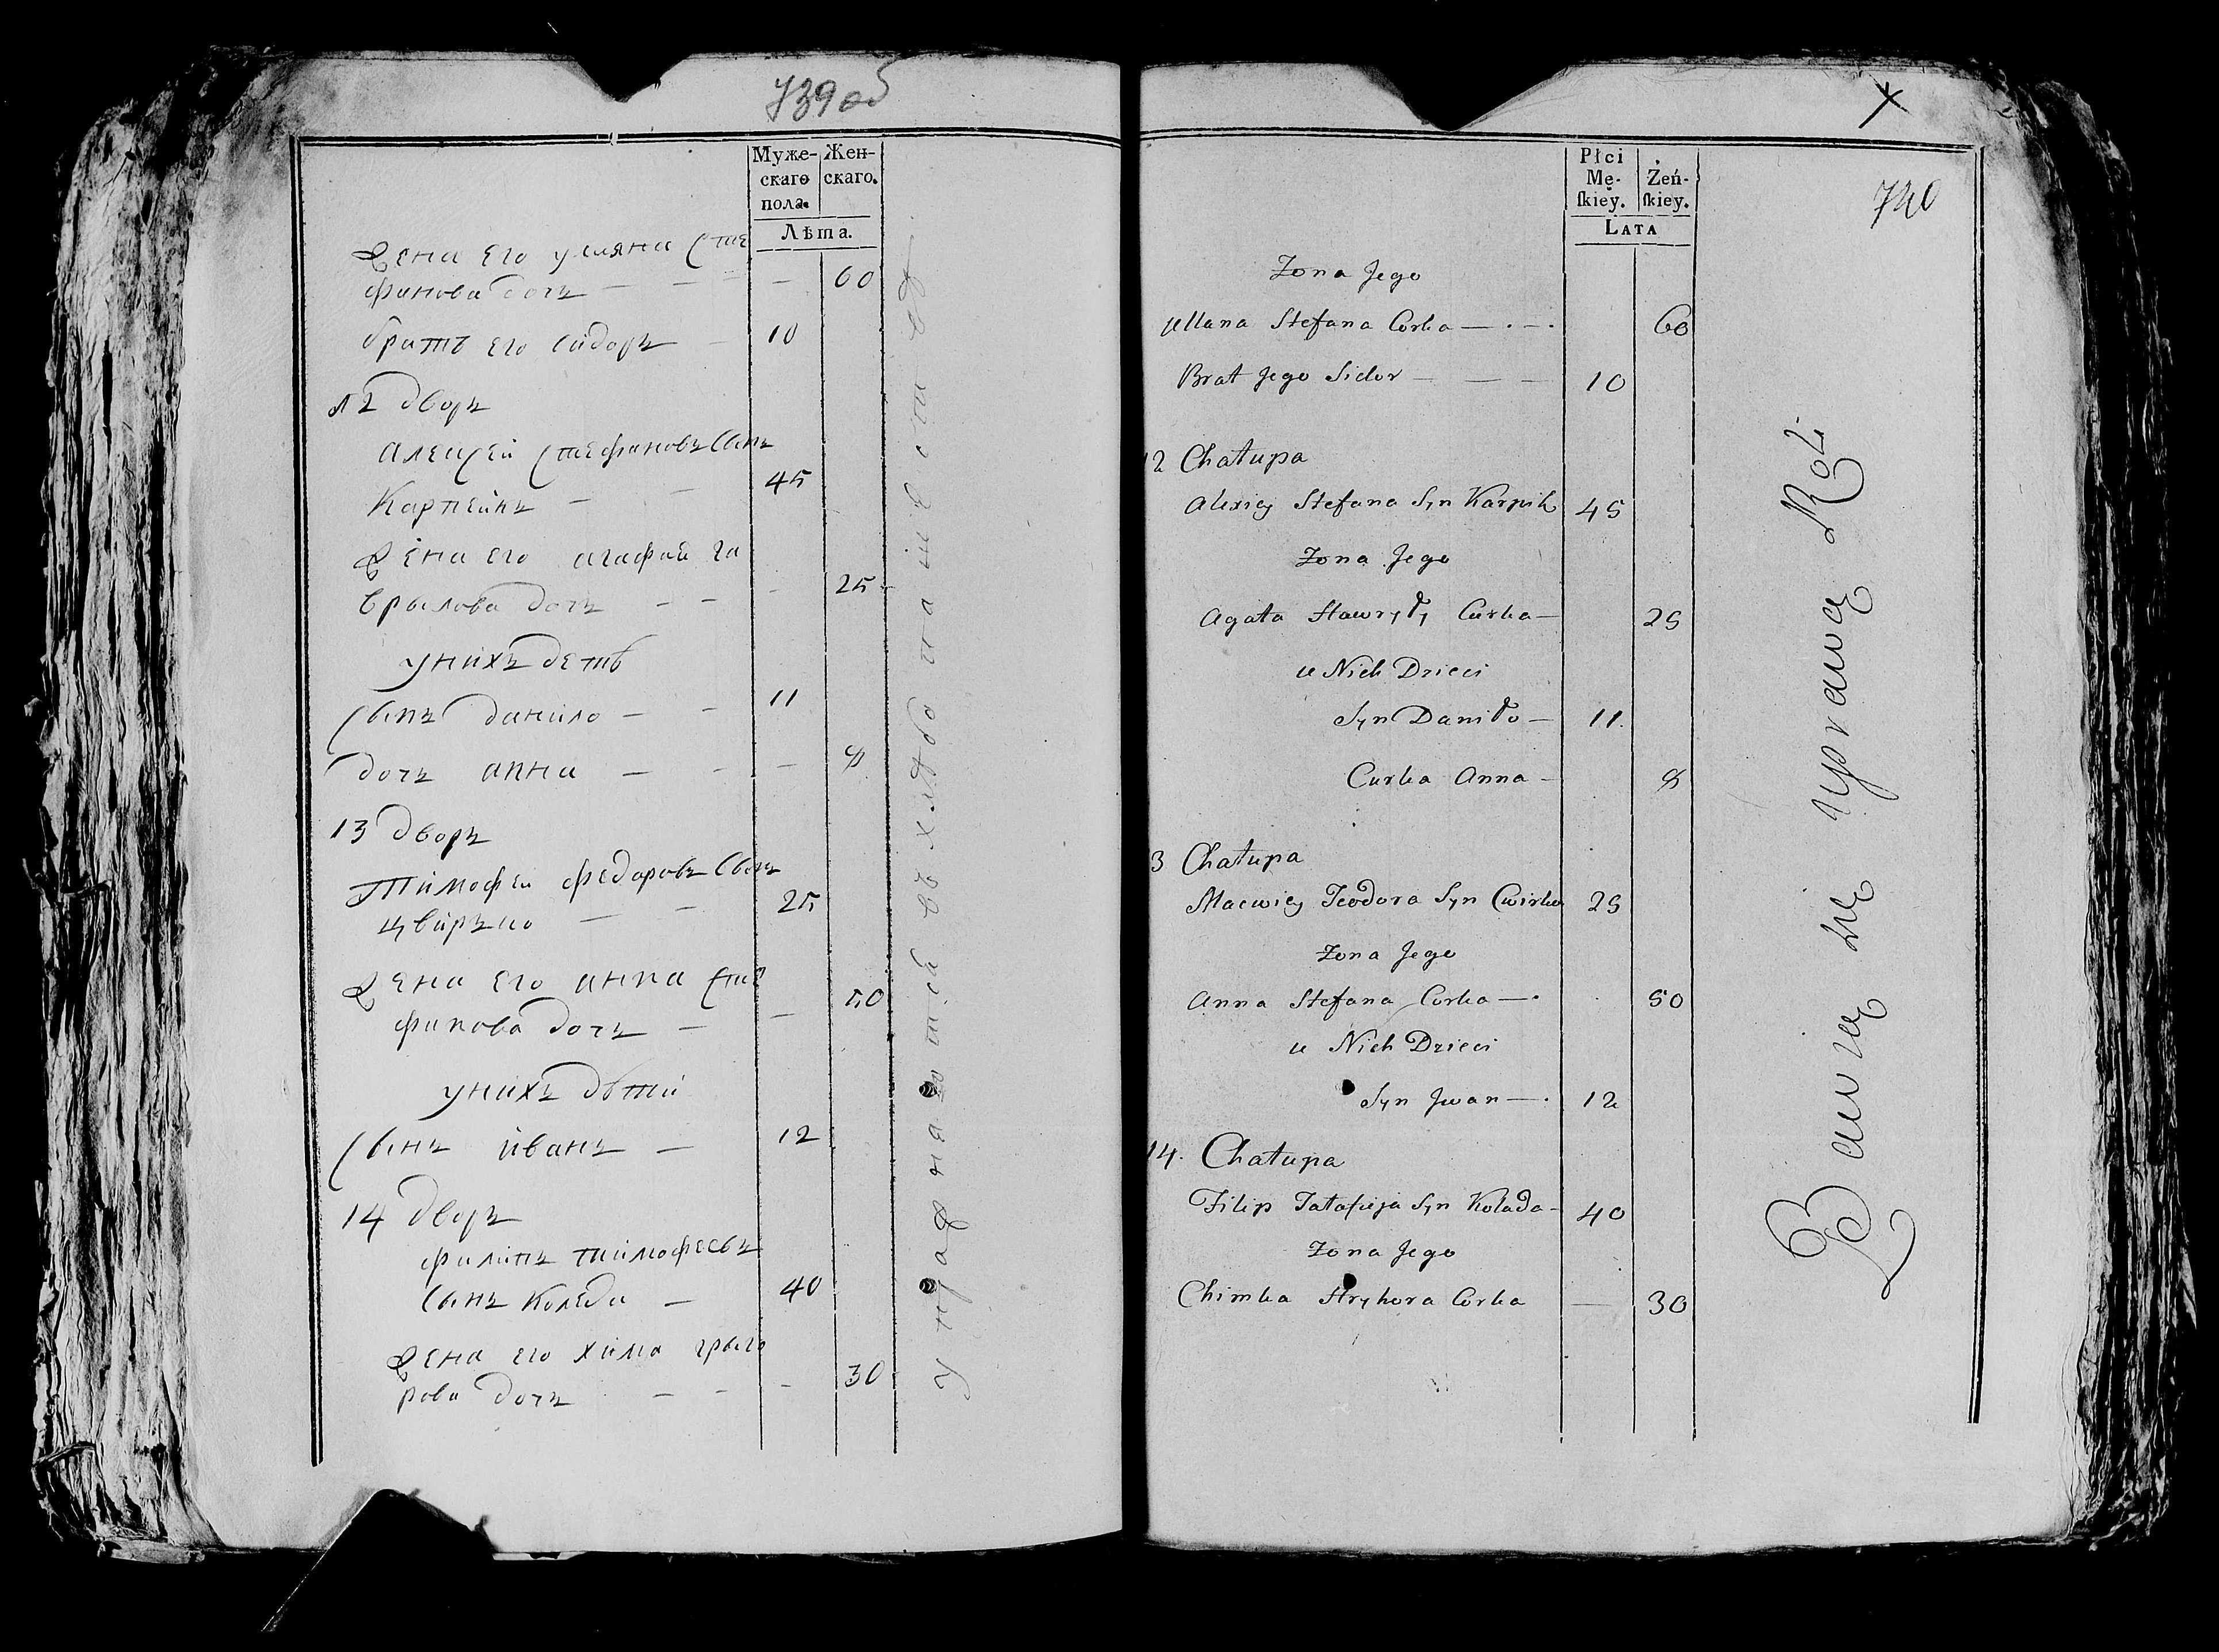 739 об
Муже-
скаго
пола.
Жен-
скаго.
Лѣта.
Жена его уляна сте
фанова дочь — — — — 60
братъ его сидоръ — 10
12 дворъ
алексей стефановъ сынъ
Карпейкъ — — 45
Жена его агафия га
врылова дочь — — — 25
унихъ дети
сынъ данило — — 11
дочь анна — — — 8
13 дворъ
Тимофей федоровъ сынъ
цвиръко — — 25
Жена его анна сте
фанова дочь — — 50
унихъ дѣти
сынъ иванъ — 12
14 дворъ
филипъ тимофеевъ
сынъ коляда — 40
Жена его хима грыго
рова дочь — — — 30
740
Płci
Mę-
ſkiey.
Żeń-
ſkiey.
Lata
Żona Jego
Ullana Stefana Corka — . — . 60
Brat Jego Sidor — — — 10
12 Chałupa
Alexiej Stefana Syn Karpik 45
Żona Jego
Agata Hawryły Curka — 25
u Nich Dzieci
Syn Daniło — 11.
Curka Anna — 8
3 Chałupa
Maewiej Teodora Syn Cwirko 25
Żona Jego
Anna Stefana Corka — . 50
u Nich Dzieci
Syn Jwan — . 12
14. Chałupa
Filip Tatafieja Syn Kolada — 40
Żona Jego
Chimka Hryhora Corka — 30
Bawią się uprawą Roli